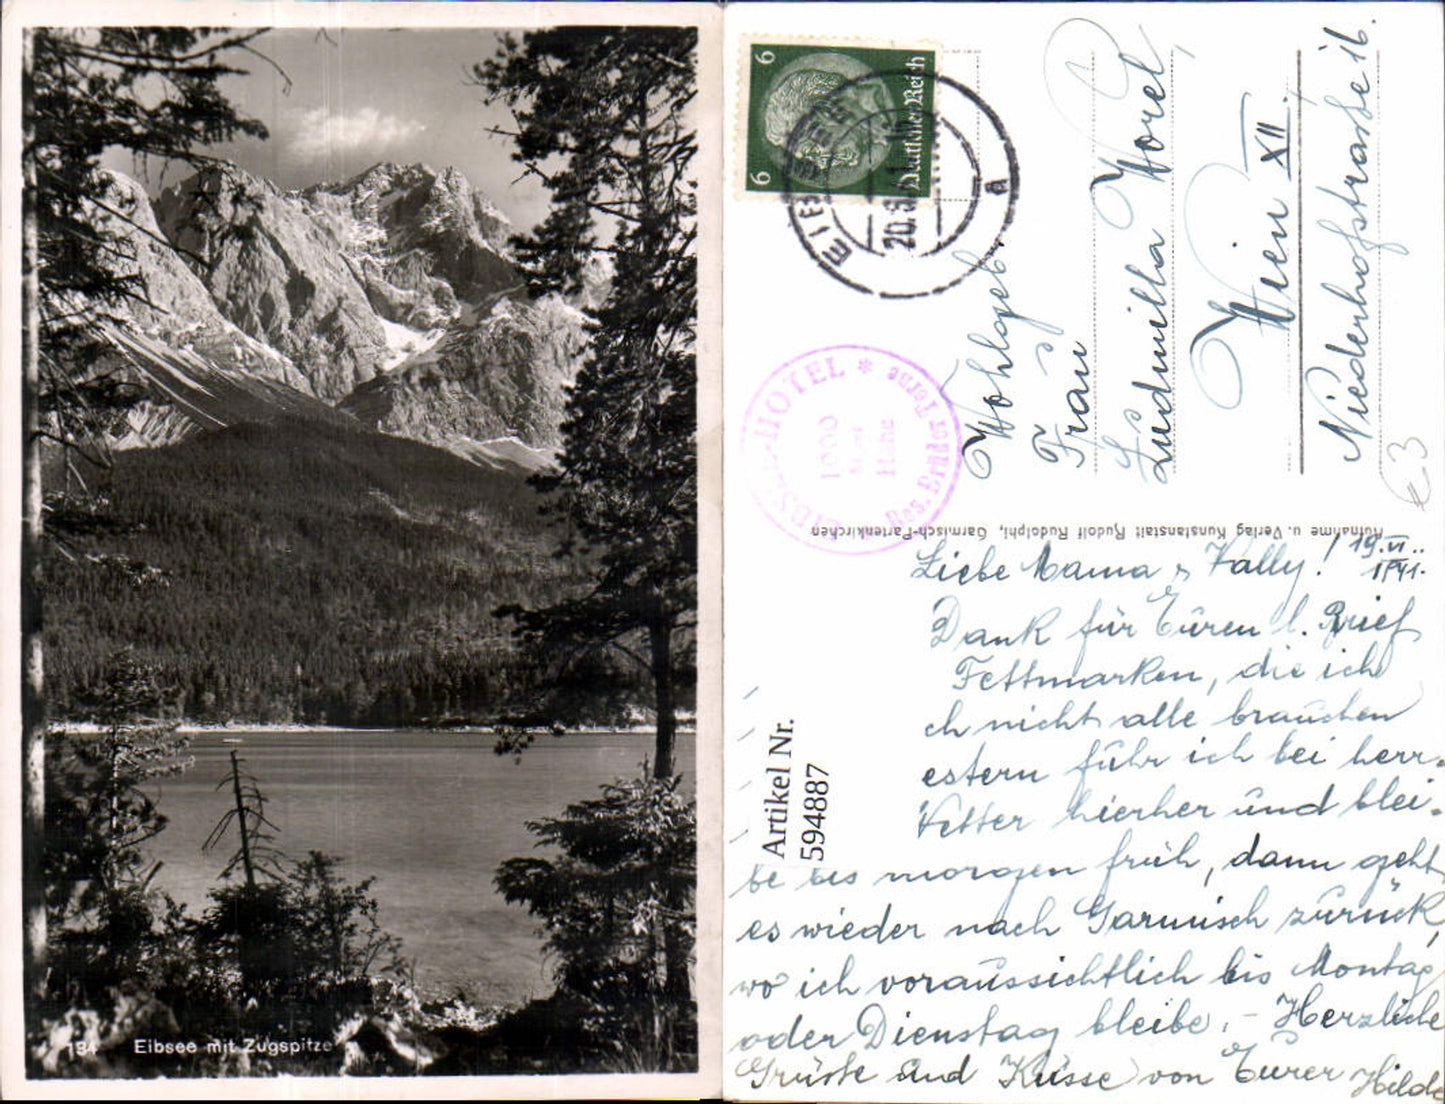 194 Eibsee mit Zugspitze
6 6
Deutsches Reich
EIBSEE
20.6.
a
EIBSEE-HOTEL * Bes. Brüder Terne
1000
Meter
Höhe
Wohlgeb.
Frau
Ludmilla Worel
Wien XII.
Niederhofstrasse 16.
€3
Aufnahme u. Verlag Kunstanstalt Rudolf Rudolphi, Garmisch-Partenkirchen
19.VI..
1941.
Liebe Mama & Wally!
Dank für Euren l. Brief
Fettmarken, die ich
ch nicht alle brauchen
estern fuhr ich bei herr-
Wetter hierher und blei-
be bis morgen früh, dann geht
es wieder nach Garmisch zurück,
wo ich voraussichtlich bis Montag
oder Dienstag bleibe. – Herzliche
Grüsse und Küsse von Eurer Hilde
Artikel Nr.
594887